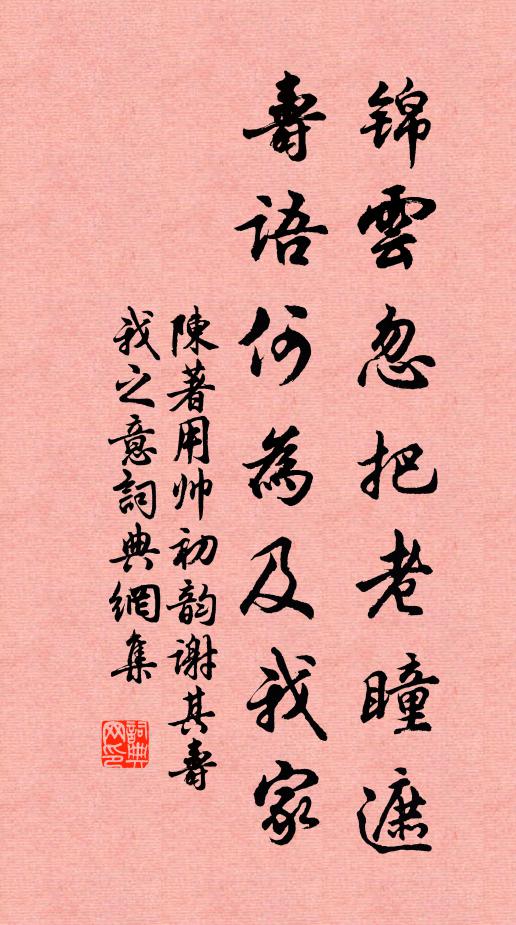 錦雲忽把老瞳遮
壽語何為及我家
陳著用帅初韵谢其壽
我之意詞典網集
詞典
网印